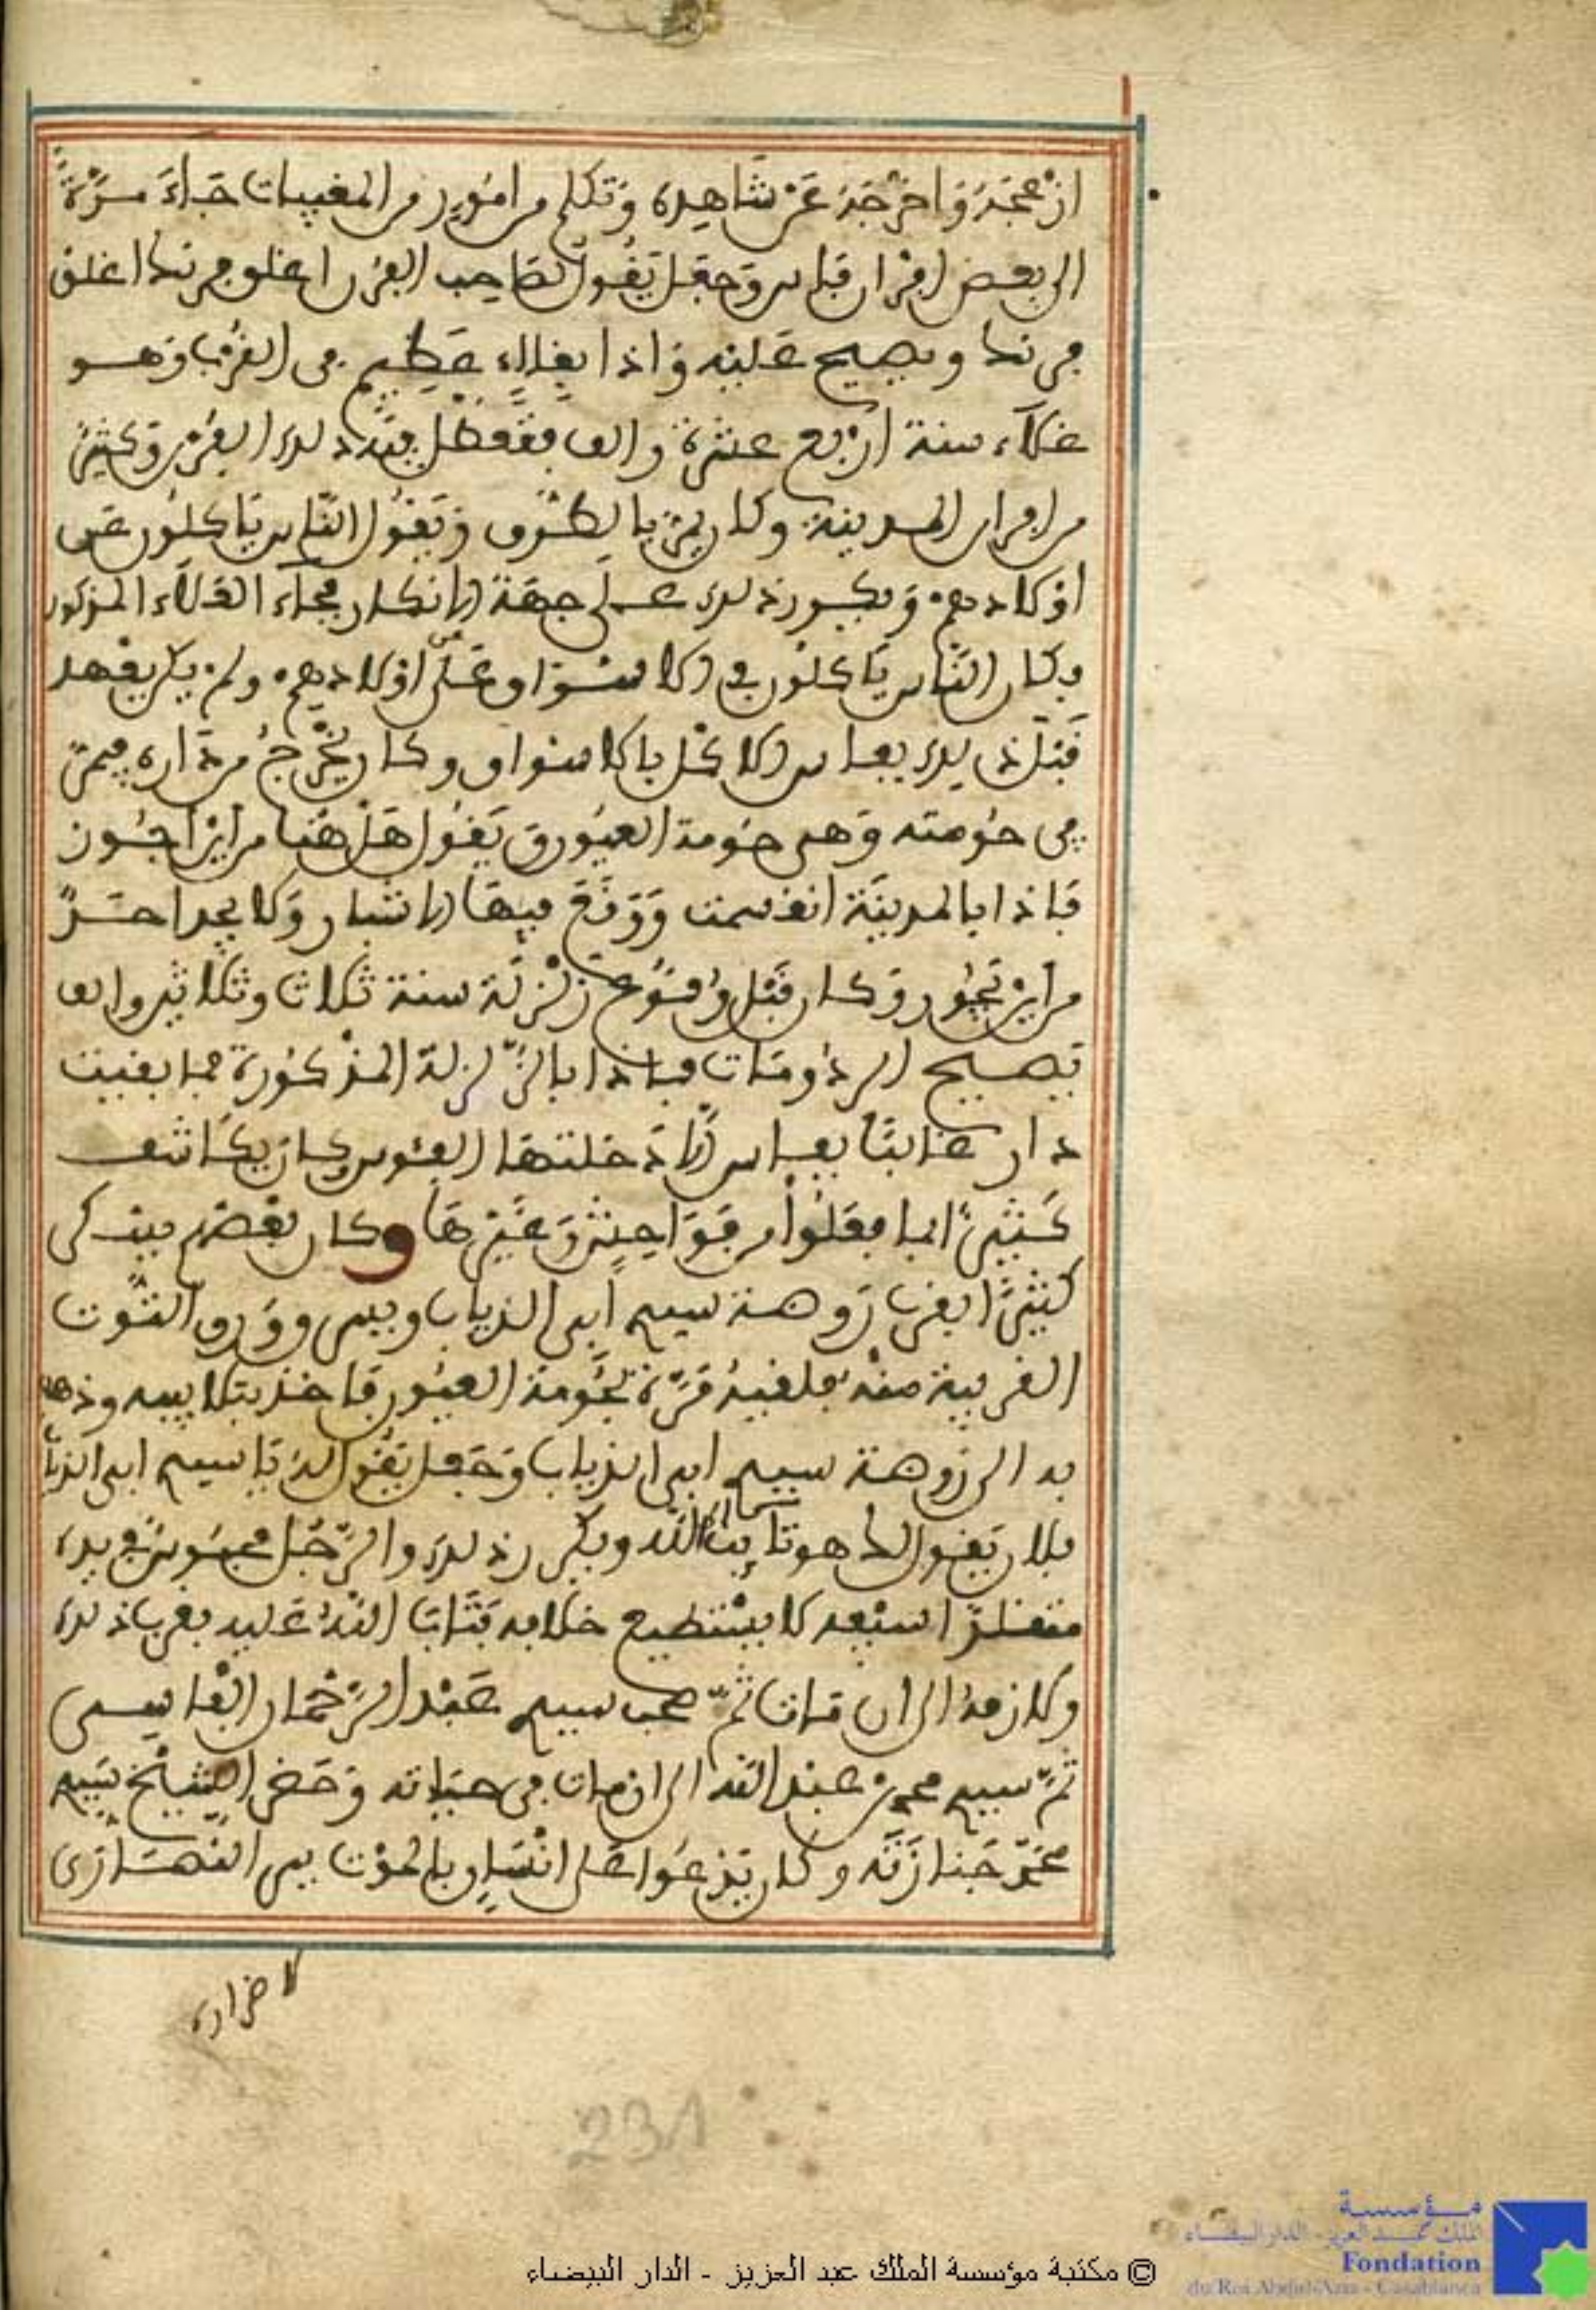 ازعجه واخرجه عن شاهده وتكلم من امور من المغيبات جاء مرة
الى بعض افران فاس وجعل يقول لصاحب الفرن اغلق فرنك اغلق
فرنك ويصيح عليه واذا بغلاء عظيم في القرب وهو
غلاء سنة اربع عشرة والف فتعطل بسبب ذلك الفرن وكثير
من افران المدينة وكان يمر بالطرق ويقول الناس ياكلون عن
اولادهم ويكون ذلك على جهة الانكار فجاء الغلاء المذكور
وكان الناس ياكلون في الاسواق على اولادهم ولم يكن يعهد
قبل ذلك بفاس الاكل بالاسواق وكان يخرج من داره فيمر
في حومته وهي حومة العيون يقول هل هنا من اين اجوز
فاذا بالمدينة انقسمت ووقع فيها الانشار ولا يجد احد
من اين يجوز وكان قبل وقوع زلزلة سنة ثلاث وثلاثين والف
يصيح الردومات فاذا بالزلزلة المذكورة فما بقيت
دار غالبا بفاس الا دخلتها الفوس وكان يكاشف
كثيرا بما فعلوا من فواحش وغيرها وكان بعضهم يبول
كثيرا بقرب روضة سيدي ابي الذياب وبين وورق التوت
القريبة منه فلقيه مرة بحومة العيون فاخذ بتلابيبه وذهب
به الى روضة سيدي ابي الذياب وجعل يقول له يا سيدي ابي الذياب
فلان يقول لك هو تايب الى الله ويكرر ذلك والرجل محبوس في يده
كالازمه الى ان مات ثم صحب سيدي عبد الرحمان الفاسي
ثم سيدي محمد بن عبد الله الى ان مات في حياته وحضر الشيخ سيدي
محمد جنازته وكان يدعوا على انسان بالموت بين النصارى
لاضراره
231
© مكتبة مؤسسة الملك عبد العزيز - الدار البيضاء
مؤسسة
الملك عبد العزيز - الدار البيضاء
Fondation
du Roi Abdul-Aziz - Casablanca